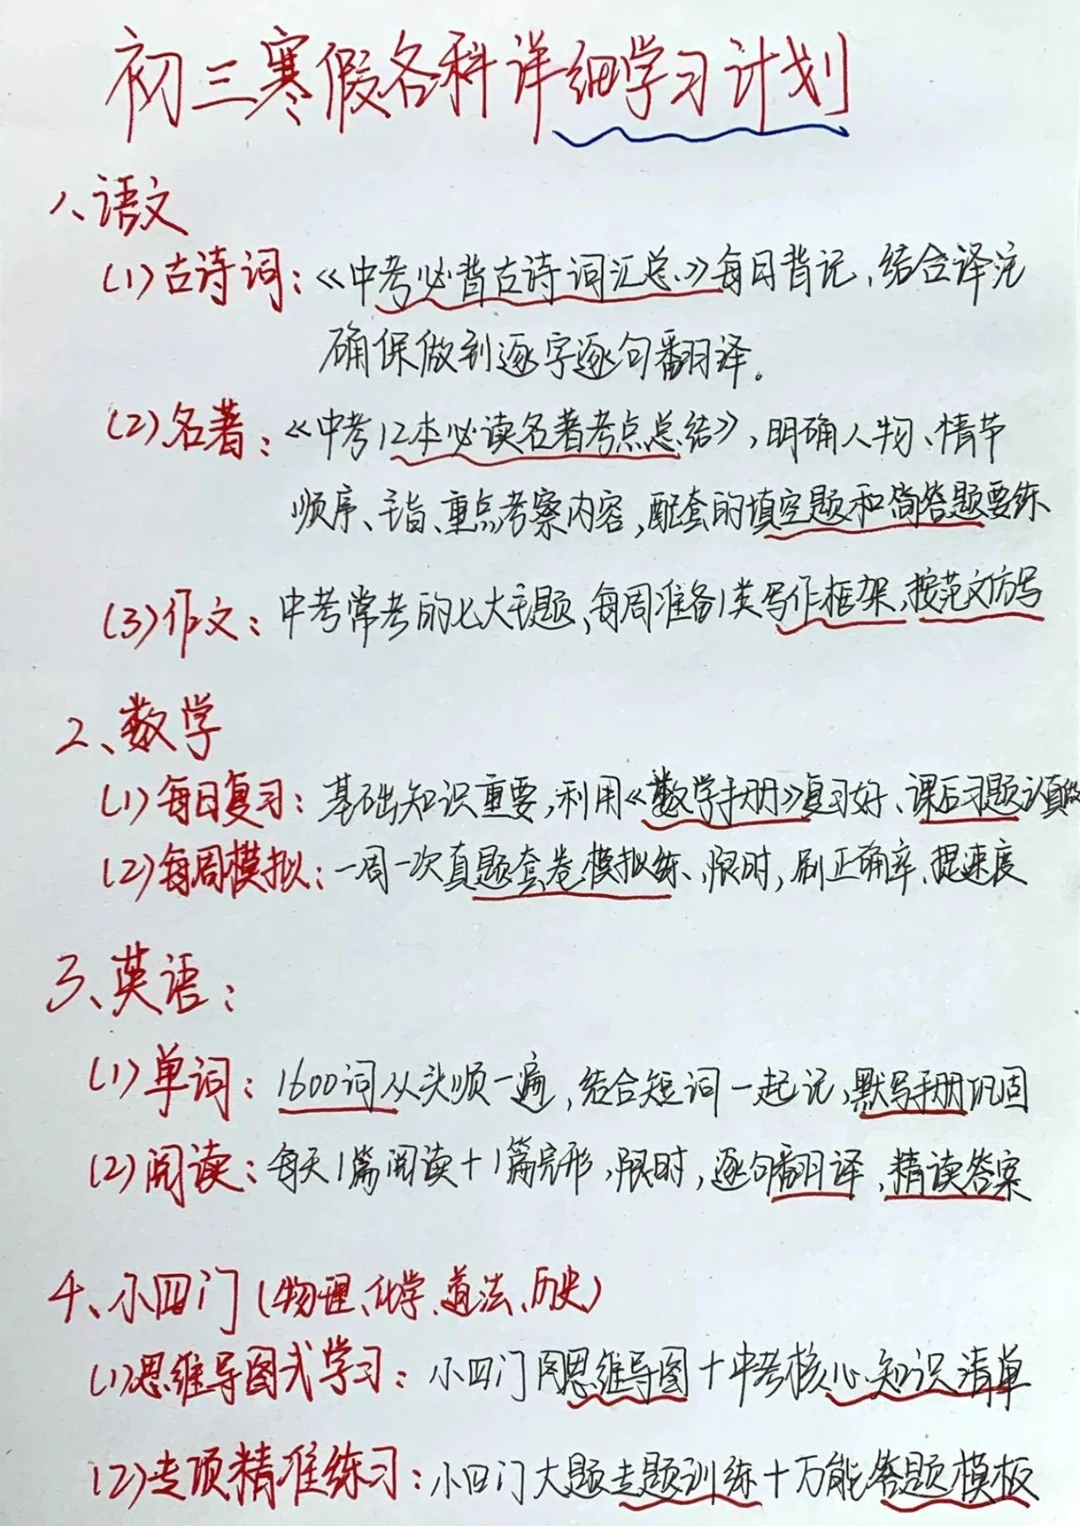 初三寒假各科详细学习计划
1、语文
(1)古诗词:《中考必背古诗词汇总》每日背记,结合译注
确保做到逐字逐句翻译。
(2)名著:《中考12本必读名著考点总结》,明确人物、情节
顺序、主旨、重点考察内容,配套的填空题和简答题要练
(3)作文:中考常考的七大主题,每周准备1类写作框架,按范文仿写
2、数学
(1)每日复习:基础知识重要,利用《数学手册》复习好、课后习题认真做
(2)每周模拟:一周一次真题套卷模拟练、限时,刷正确率、提速度
3、英语:
(1)单词:1600词从头顺一遍,结合短词一起记,默写手册巩固
(2)阅读:每天1篇阅读+1篇完形,限时,逐句翻译,精读答案
4、小四门(物理、化学、道法、历史)
(1)思维导图式学习:小四门用思维导图+中考核心知识清单
(2)专项精准练习:小四门大题专题训练+万能答题模板